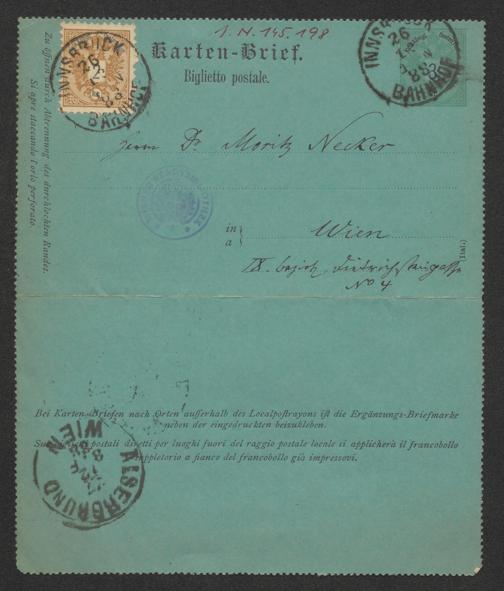 I. N. 145.198
Karten-Brief.
Biglietto postale.
INNSBRUCK
26
88
BAHNHOF
INNSBRUCK
26
88
BAHNHOF
Zu öffnen durch Abtrennung des durchlochten Randes.
Si apre staccando l'orlo perforato.
Herrn Dr Moritz Necker
in
a
Wien
IX. bezirk, Dietrichsteingasse
No 4
Bei Karten-Briefen nach Orten außerhalb des Localpostrayons ist die Ergänzungs-Briefmarke
neben der eingedruckten beizukleben.
postali diretti per luoghi fuori del raggio postale locale si applicherà il francobollo
suppletorio a fianco del francobollo già impressovi.
ALSERGRUND
WIEN
27
88